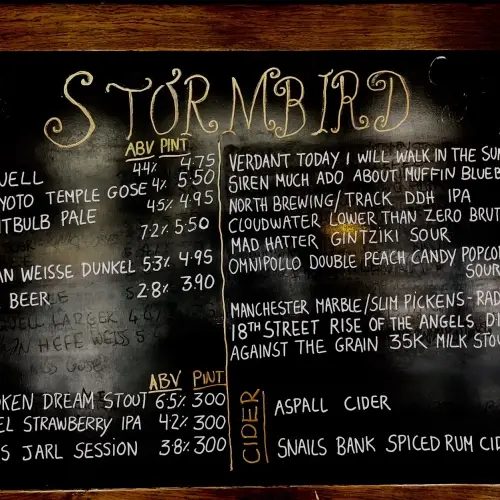 STORMBIRD
ABV PINT
WELL 4.4% 4.75
YOTO TEMPLE GOSE 4% 5.50
TBULB PALE 4.5% 4.95
7.2% 5.50
AN WEISSE DUNKEL 5.3% 4.95
BEER 2.8% 3.90
ABV PINT
KEN DREAM STOUT 6.5% 300
EL STRAWBERRY IPA 4.2% 300
S JARL SESSION 3.8% 300
VERDANT TODAY I WILL WALK IN THE SUN
SIREN MUCH ADO ABOUT MUFFIN BLUEB
NORTH BREWING/TRACK DDH IPA
CLOUDWATER LOWER THAN ZERO BRUT
MAD HATTER GINTZIKI SOUR
OMNIPOLLO DOUBLE PEACH CANDY POPCO
SOUR
MANCHESTER MARBLE/SLIM PICKENS-RAD
18TH STREET RISE OF THE ANGELS DI
AGAINST THE GRAIN 35K MILK STOU
CIDER
ASPALL CIDER
SNAILS BANK SPICED RUM CID